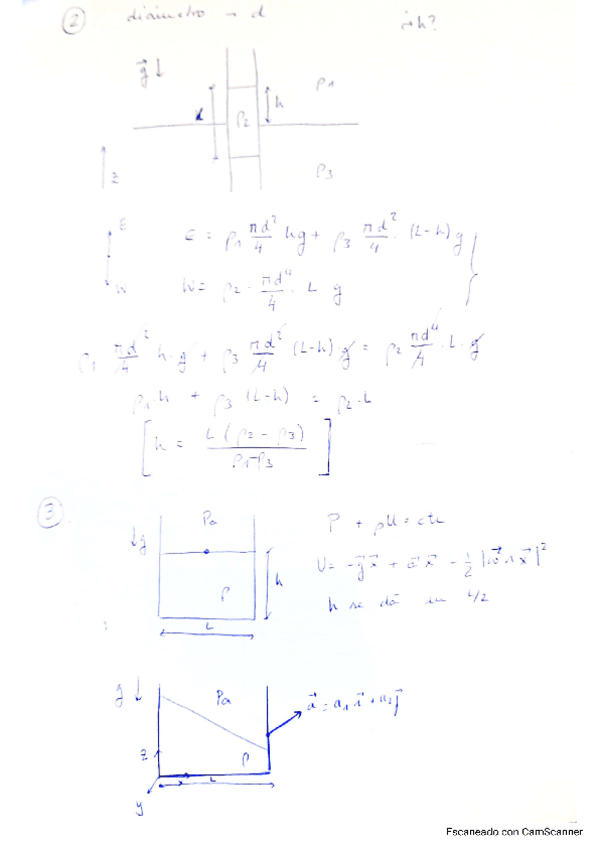 ② diámetro → d ¿h?
g⃗ ↓
ρ1
h
L
ρ2
z
ρ3
E
E = ρ1 πd²/4 hg + ρ3 πd²/4 · (L-h) g
W
W = ρ2 · πd⁴/4 · L g
ρ1 πd²/4 h · g + ρ3 πd²/4 (L-h) · g = ρ2 πd⁴/4 · L · g
ρ1 · h + ρ3 (L-h) = ρ2 · L
[h = L (ρ2 - ρ3) / ρ1-ρ3]
③
Pa
P + ρU = cte
↓g
U = -g⃗ x⃗ + a⃗ x⃗ - 1/2 |ω⃗ ∧ x⃗|²
ρ
h
h se dá en L/2
L
g ↓
Pa
a⃗ = a1 i⃗ + a2 j⃗
z
ρ
x
L
y
Escaneado con CamScanner